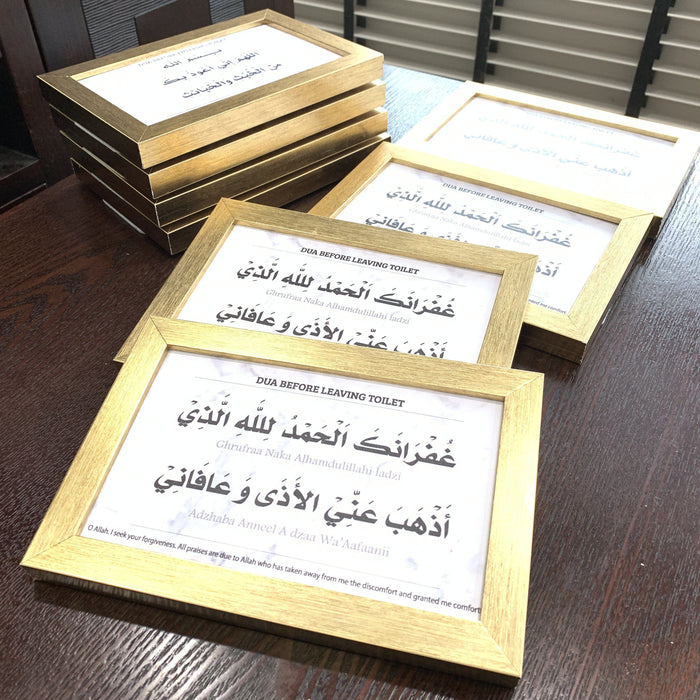 DUA BEFORE ENTERING TOILET
بسم الله
اللهم اني اعوذ بك
من الخبث والخبائث
غُفْرَانَكَ اَلْحَمْدُ لِلَّهِ الَّذِيْ
أَذْهَبَ عَنِّيْ الأَذَى وَ عَافَانِيْ
DUA BEFORE LEAVING TOILET
غُفْرَانَكَ اَلْحَمْدُ لِلَّهِ الَّذِيْ
Ghrufraa Naka Alhamdulillahi ladzi
أَذْهَبَ عَنِّيْ الأَذَى وَ عَافَانِيْ
granted me comfort
DUA BEFORE LEAVING TOILET
غُفْرَانَكَ اَلْحَمْدُ لِلَّهِ الَّذِيْ
Ghrufraa Naka Alhamdulillahi ladzi
أَذْهَبَ عَنِّيْ الأَذَى وَ عَافَانِيْ
DUA BEFORE LEAVING TOILET
غُفْرَانَكَ اَلْحَمْدُ لِلَّهِ الَّذِيْ
Ghrufraa Naka Alhamdulillahi ladzi
أَذْهَبَ عَنِّيْ الأَذَى وَ عَافَانِيْ
Adzhaba Anneel A dzaa Wa'Aafaanii
O Allah. I seek your forgiveness. All praises are due to Allah who has taken away from me the discomfort and granted me comfort